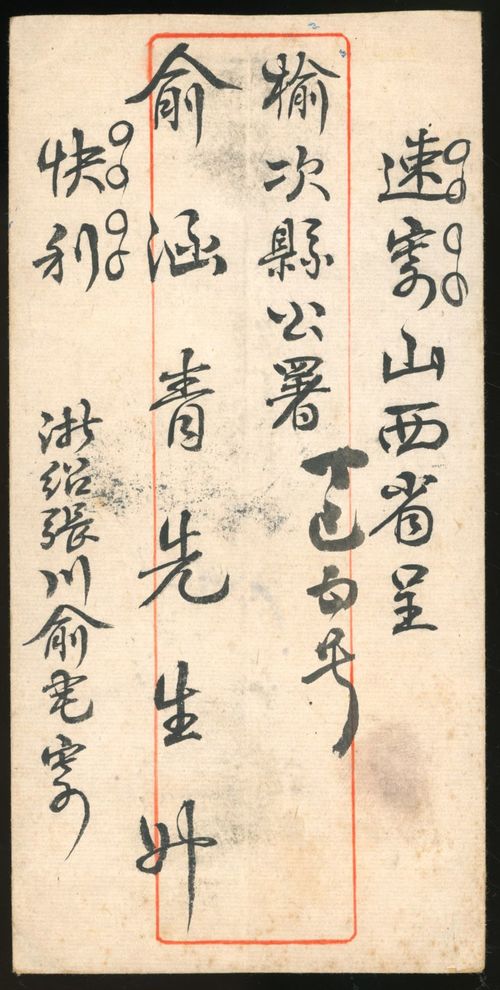 速寄山西省呈
榆次縣公署
丁巳
俞涵青先生
快利
浙紹張川俞宅寄